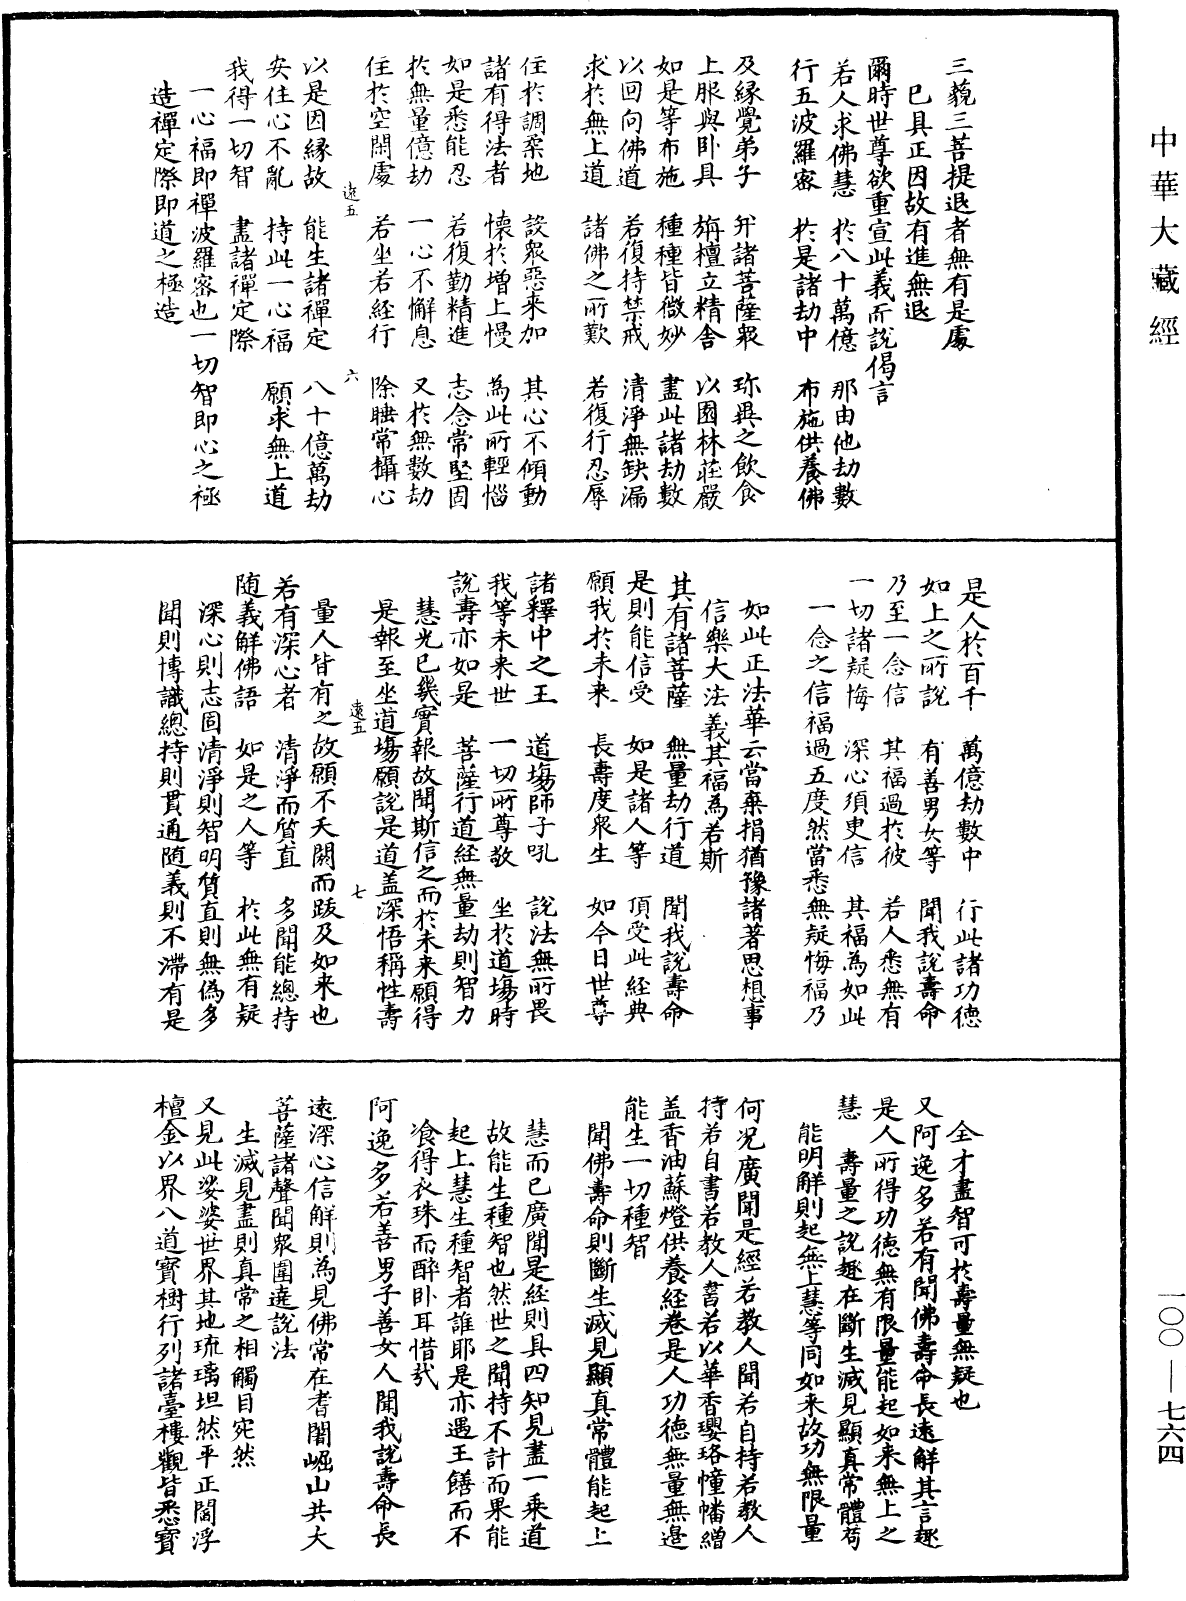 中華大藏經
三藐三菩提退者無有是處
已具正因故有進無退
爾時世尊欲重宣此義而說偈言
若人求佛慧　於八十萬億　那由他劫數
行五波羅蜜　於是諸劫中　布施供養佛
及緣覺弟子　幷諸菩薩眾　珎異之飲食
上服與卧具　旃檀立精舍　以園林莊嚴
如是等布施　種種皆微妙　盡此諸劫數
以回向佛道　若復持禁戒　清淨無缺漏
求於無上道　諸佛之所歎　若復行忍辱
住於調柔地　設眾惡来加　其心不傾動
諸有得法者　懷於增上慢　為此所輕惱
如是悉能忍　若復勤精進　志念常堅固
於無量億劫　一心不懈息　又於無數劫
住於空閑處　若坐若經行　除睡常攝心
遠五　六
以是因緣故　能生諸禪定　八十億萬劫
安住心不亂　持此一心福　願求無上道
我得一切智　盡諸禪定際
一心福即禪波羅密也一切智即心之極
造禪定際即道之極造
是人於百千　萬億劫數中　行此諸功德
如上之所說　有善男女等　聞我說壽命
乃至一念信　其福過於彼　若人悉無有
一切諸疑悔　深心須臾信　其福為如此
一念之信福過五度然當悉無疑悔福乃
如此正法華云當棄捐猶豫諸著思想事
信樂大法義其福為若斯
其有諸菩薩　無量劫行道　聞我說壽命
是則能信受　如是諸人等　頂受此經典
願我於未来　長壽度眾生　如今日世尊
諸釋中之王　道場師子吼　說法無所畏
我等未来世　一切所尊敬　坐於道場時
說壽亦如是　菩薩行道經無量劫則智力
慧光已幾實報故聞斯信之而於未来願得
是報至坐道場願說是道盖深悟稱性壽
遠五　七
量人皆有之故願不夭閼而跂及如来也
若有深心者　清淨而質直　多聞能總持
随義解佛語　如是之人等　於此無有疑
深心則志固清淨則智明質直則無偽多
聞則博識總持則貫通随義則不滯有是
全才盡智可於壽量無疑也
又阿逸多若有聞佛壽命長遠解其言趣
是人所得功德無有限量能起如来無上之
慧　壽量之說趣在斷生滅見顯真常體苟
能明解則起無上慧等同如来故功無限量
何况廣聞是經若教人聞若自持若教人
持若自書若教人書若以華香瓔珞幢幡繒
盖香油蘇燈供養經卷是人功德無量無邊
能生一切種智
聞佛壽命則斷生滅見顯真常體能起上
慧而已廣聞是經則具四知見盡一乘道
故能生種智也然世之聞持不計而果能
起上慧生種智者誰耶是亦遇王饍而不
飡得衣珠而醉卧耳惜㢤
阿逸多若善男子善女人聞我說壽命長
遠深心信解則為見佛常在耆闍崛山共大
菩薩諸聲聞眾圍遶說法
生滅見盡則真常之相觸目宛然
又見此娑婆世界其地琉璃坦然平正閻浮
檀金以界八道寶樹行列諸臺樓觀皆悉寶
一〇〇—七六四